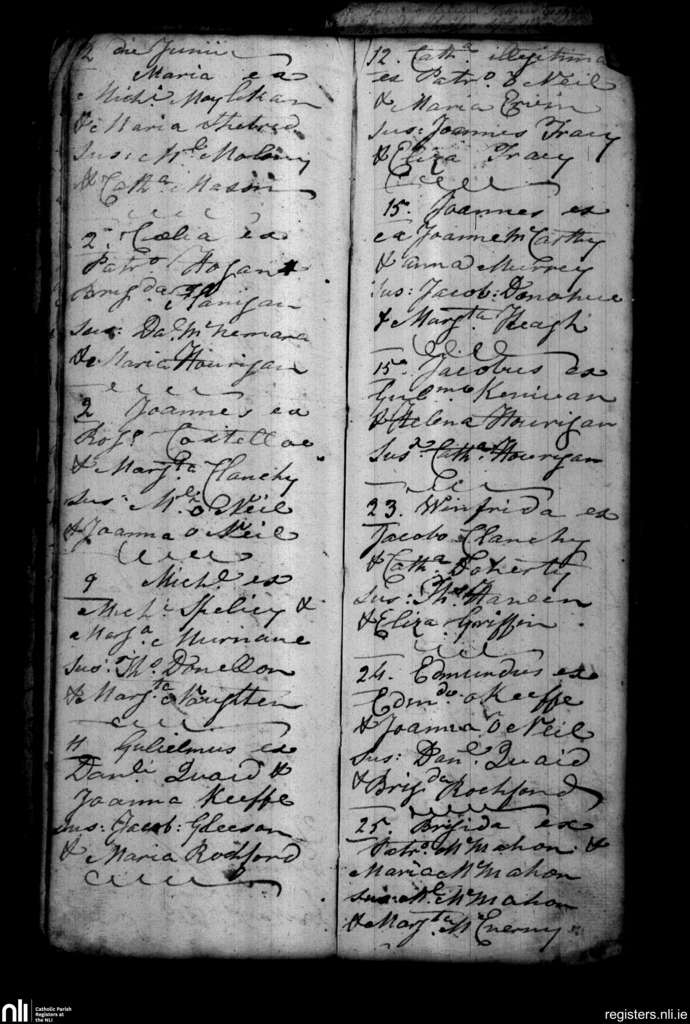 2 die Junii
Maria ex
Michl.
& Maria
Sus: Ml. Molony
& Catha.
2. Cælia ex
Patro Hogan &
Brigda. Flanigan
Sus: Danl. McNemara
& Maria Hourigan
2 Joannes ex
Rogr. Costelloe
& Margta. Clanchy
Sus: Ml. o Neil
& Joanna o Neil
9 Michl. ex
Michl. &
Marga. Murnane
Sus: Tho. Donellon
& Margta. Naughten
11 Gulielmus ex
Danli. Quaid &
Joanna Keeffe
Sus: Jacob: Gleeson
& Maria Rochford
12. Catha. illegitima
ex Patro. o Neil
& Maria Erwin
Sus: Joannes Tracy
& Eliza Tracy
15. Joannes ex
ex Joanne McCarthy
& anna Murrey
Sus: Jacob: Donohue
& Margta. Keagh
15o Jacobus ex
Gulmo. Keniwan
& Helena Hourigan
Sus: Catha. Hourigan
23. Winifrida ex
Jacobo Clanchy
& Catha. Doherty
Sus: Ths. Haneen
& Eliza: Griffin
24. Edmundus ex
Edmdo. o Keeffe
& Joanna o Neil
Sus: Danl. Quaid
& Brigda Rochford
25. Brigida ex
Patro. McMahon &
Maria McMahon
Sus: Ml. McMahon
& Margta. McEnerny
nli
Catholic Parish
Registers at
the NLI
registers.nli.ie